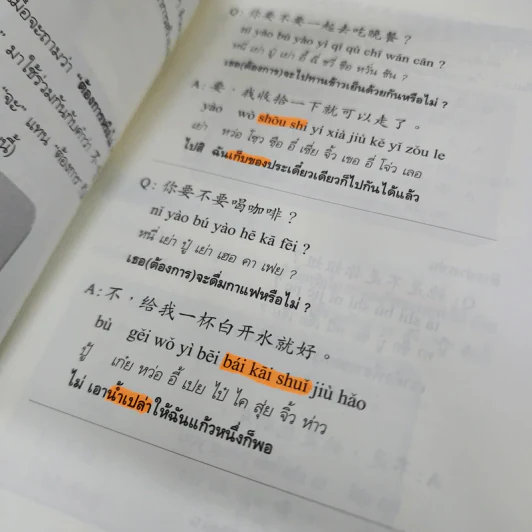 มื่อจะถามว่า "ต้องการหรือ
" มาใช้ร่วมกันกับคำว่า
"จะ" แทน "ต้องการ
นี้)
Q: 你要不要一起去吃晚餐？
nǐ yào bú yào yì qǐ qù chī wǎn cān ?
หนี่ เย่า ปู๋ เย่า อี้ ฉี่ ชวี่ ชือ หวั่น ชัน ?
เธอ(ต้องการ)จะไปทานข้าวเย็นด้วยกันหรือไม่ ?
A: 要，我收拾一下就可以走了。
yào wǒ shōu shí yí xià jiù kě yǐ zǒu le
เย่า หว่อ โชว สือ อี๋ เซี่ย จิ้ว เขอ อี่ โจ่ว เลอ
ไปสิ ฉันเก็บของประเดี๋ยวเดียวก็ไปกันได้แล้ว
Q: 你要不要喝咖啡？
nǐ yào bú yào hē kā fēi ?
หนี่ เย่า ปู๋ เย่า เฮอ คา เฟย ?
เธอ(ต้องการ)จะดื่มกาแฟหรือไม่ ?
A: 不，给我一杯白开水就好。
bù gěi wǒ yì bēi bái kāi shuǐ jiù hǎo
ปู้ เก๋ย หว่อ อี้ เปย ไป๋ ไค สุ่ย จิ้ว ห่าว
ไม่ เอาน้ำเปล่าให้ฉันแก้วหนึ่งก็พอ